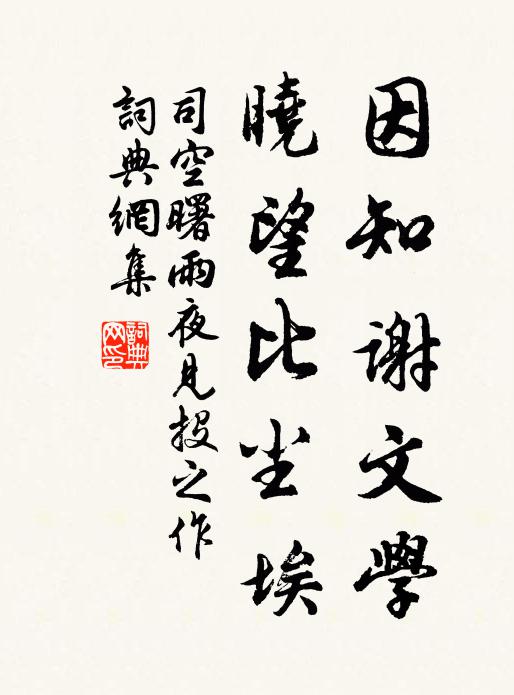 因知謝文學
曉望比尘埃
司空曙雨夜見投之作
詞典網集
詞典網印